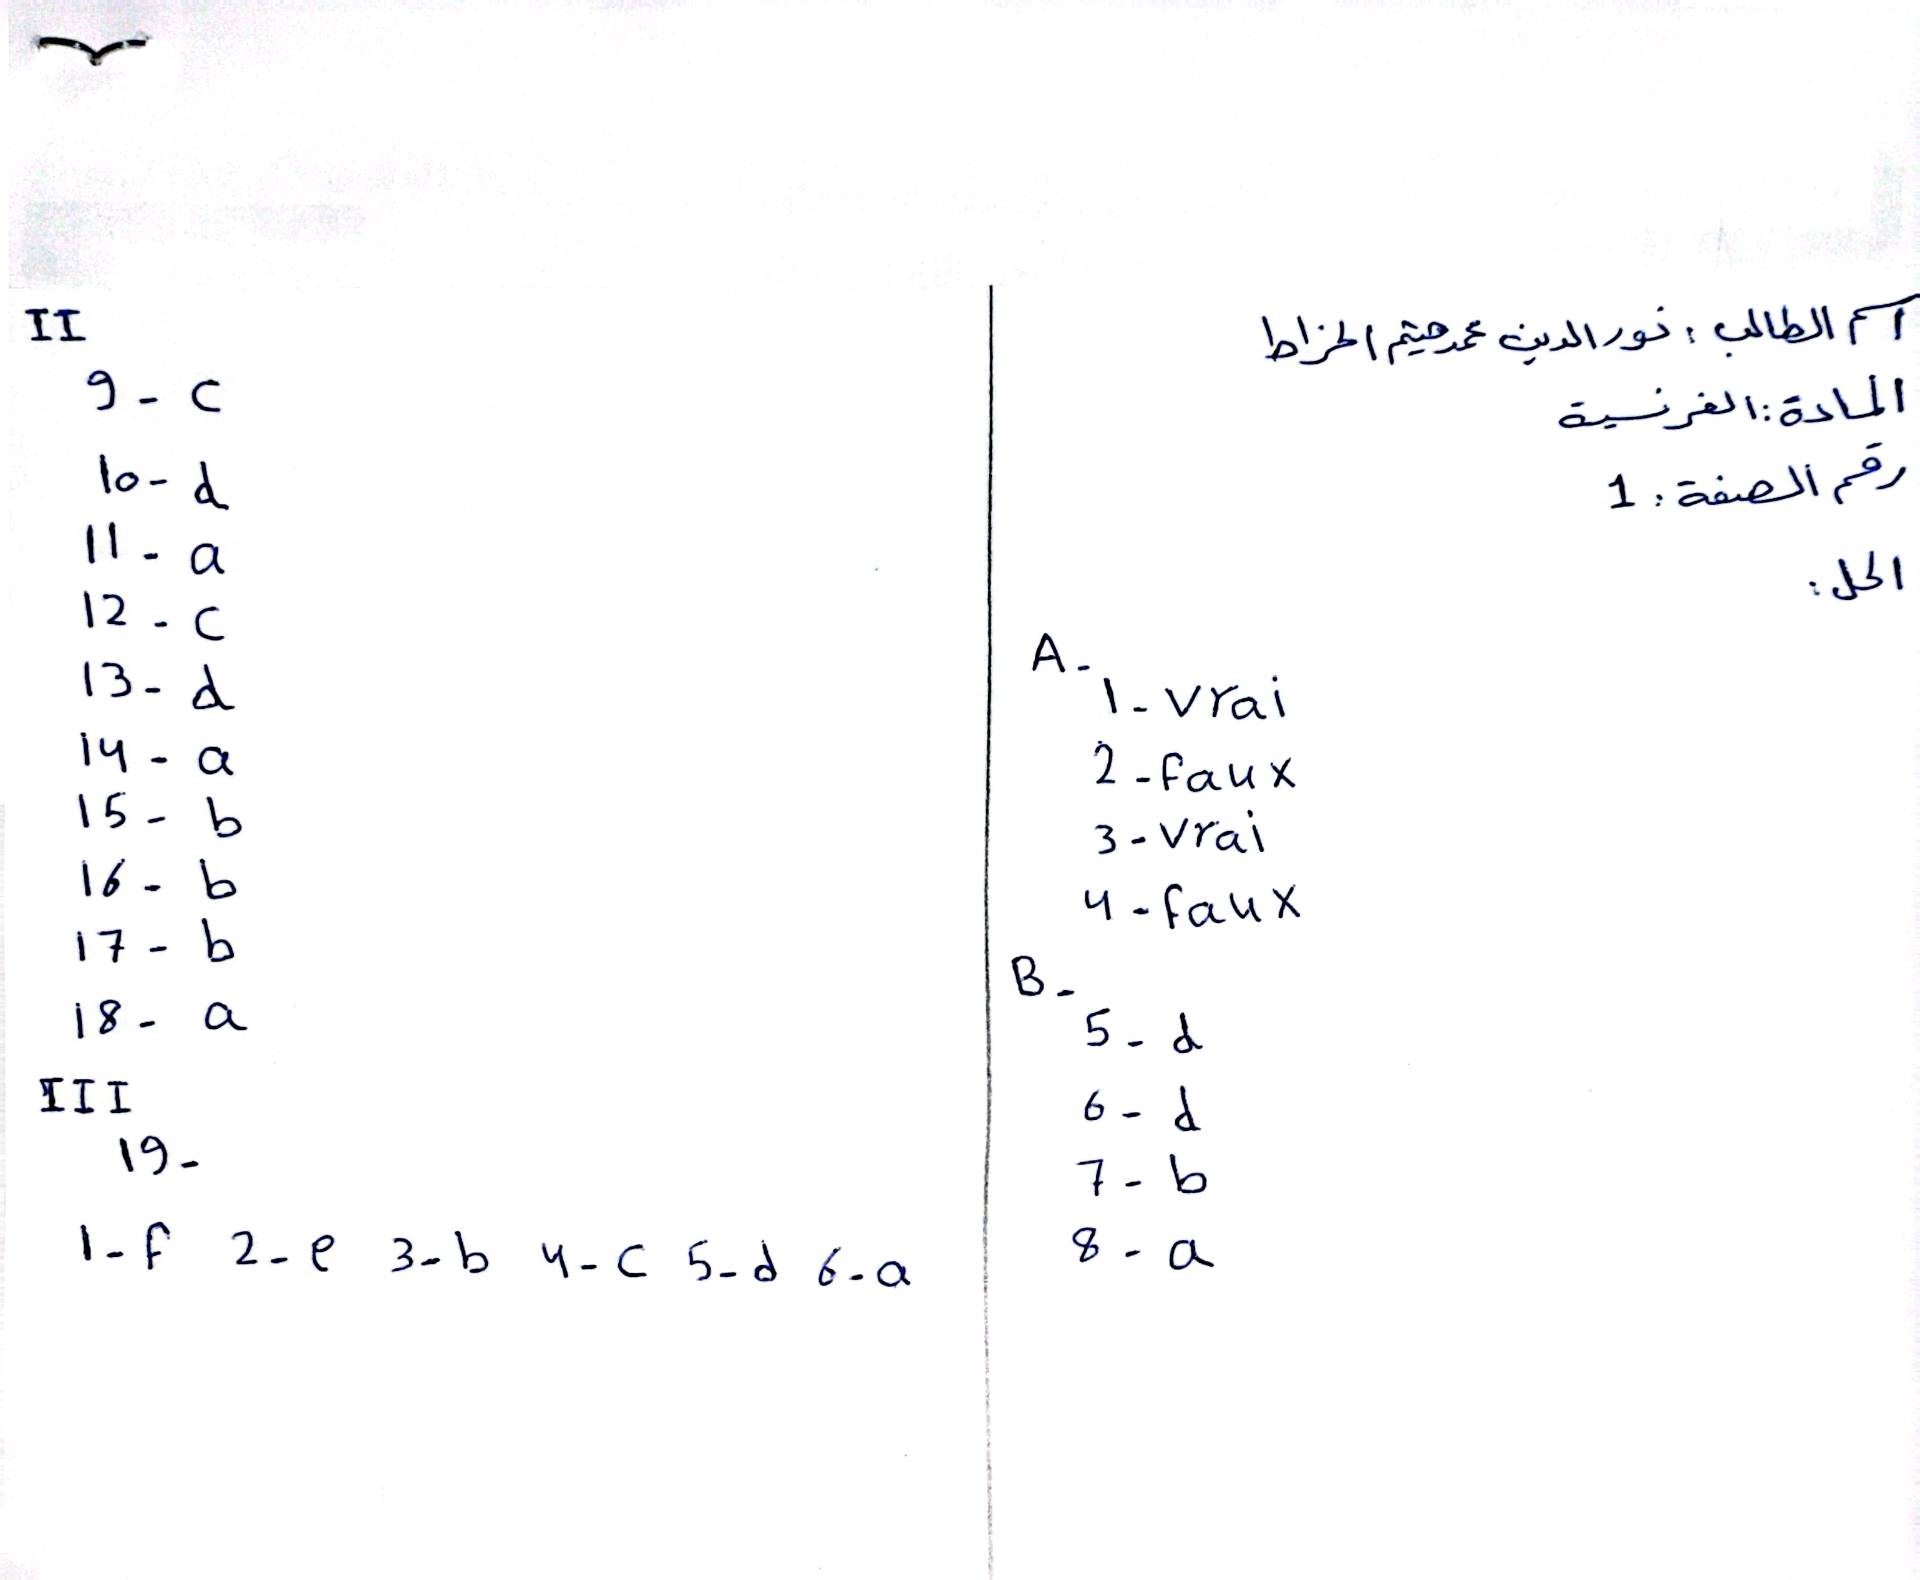 اسم الطالب : نور الدين محمد هيثم الخراط
المادة : الفرنسية
رقم الصفحة : 1
الحل :
A -
1 - vrai
2 - faux
3 - vrai
4 - faux
B -
5 - d
6 - d
7 - b
8 - a
II
9 - c
10 - d
11 - a
12 - c
13 - d
14 - a
15 - b
16 - b
17 - b
18 - a
III
19 -
1 - f 2 - e 3 - b 4 - c 5 - d 6 - a